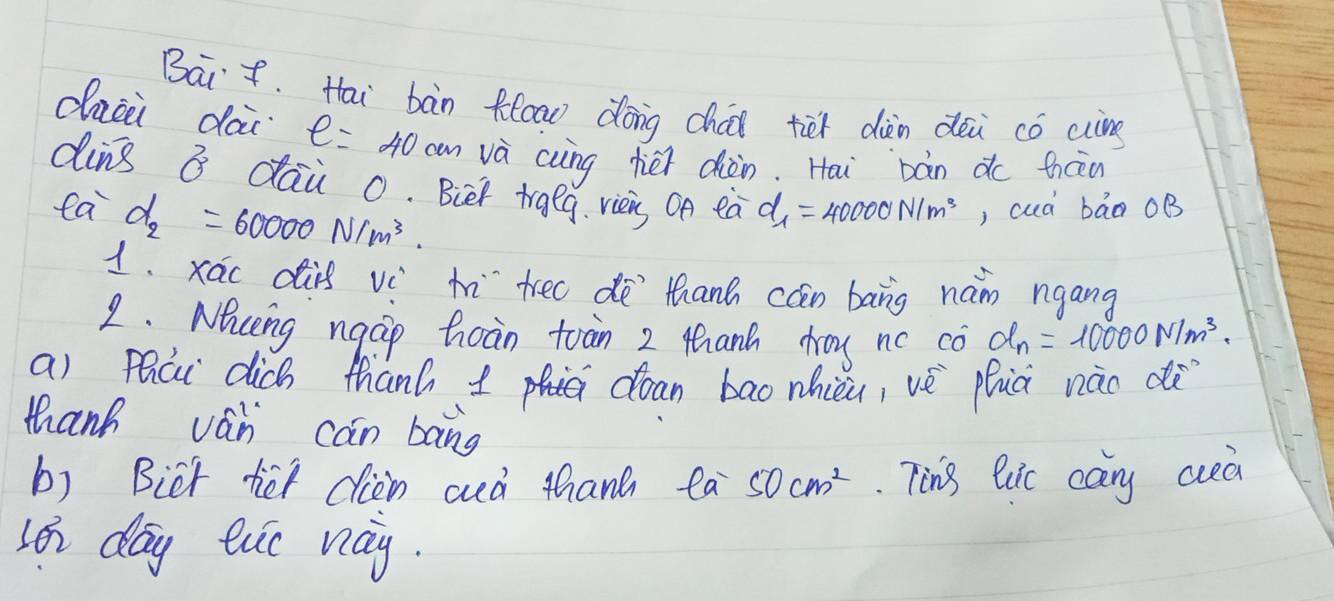 Bài 7. Hai bản kloại đồng chất tiết diện đều có cùng
chiều dài l = 40 cm và cùng tiết diện. Hai bản đc hàn
dính ở đầu O. Biết trọng lg riêng OA là d₁ = 40000 N/m³, của bản OB
là d₂ = 60000 N/m³.
1. Xác định vị trí treo để thanh cân bằng nằm ngang
2. Nhúng ngập hoàn toàn 2 thanh trong nc có dn = 10000 N/m³.
a) Phải dịch thanh 1 đoạn bao nhiêu, về phía nào để
thanh vẫn cân bằng
b) Biết tiết diện của thanh là 50 cm². Tính lực căng của
sợi dây lúc này.